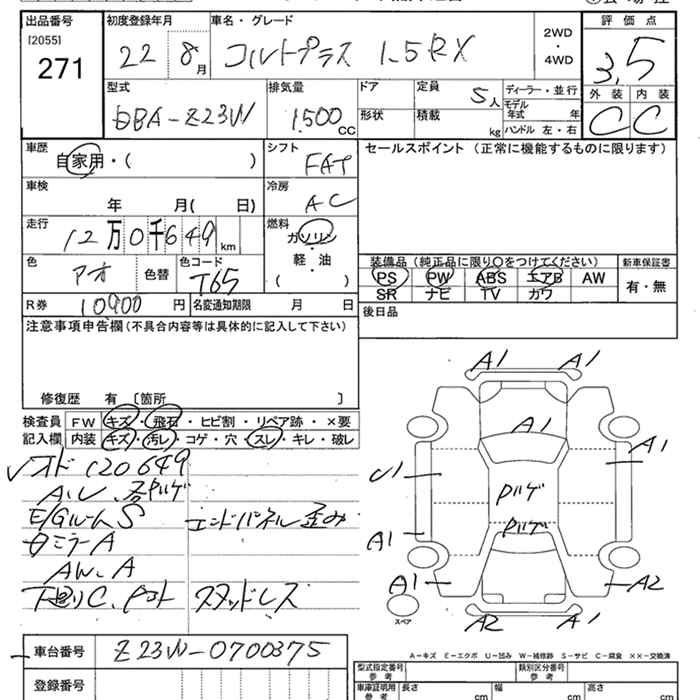 出品番号 初度登録年月 車名・グレード 2WD・4WD 評価点
[2055]
271
22 8月 コルトプラス 1.5RX 3.5
型式 排気量 ドア 定員 5人 ディーラー・並行 外装 内装
DBA-Z23W 1500CC 形状 積載 kg モデル年式 年 C C
ハンドル 左・右
車歴 シフト セールスポイント (正常に機能するものに限ります)
自家用・( ) FAT
車検 冷房
年 月( 日) AC
走行 燃料
12万0千649km ガソリン・軽・油 ( )
装備品 (純正品に限り○をつけてください) 新車保証書
色 アオ 色替 色コード T65 PS PW ABS エアB AW 有・無
SR ナビ TV カワ
R券 10900円 名変通知期限 月 日
後日品
注意事項申告欄(不具合内容等は具体的に記入して下さい)
修復歴 有 〔箇所 〕
検査員 FW キズ・飛石・ヒビ割・リペア跡・×要
記入欄 内装 キズ・汚レ・コゲ・穴・スレ・キレ・破レ
オド120649
E/GルームS エンドパネル歪み
ミラーA
AW.A
スタッドレス
A1 A1
A1
A1
U1
A1
A1 A2
スペア
A2 A1
A-キズ E-エクボ U-凹み W-補修跡 S-サビ C-腐食 ××-交換済
車台番号 Z23W-0700375
登録番号
型式指定番号 参考 類別区分番号 参考
車庫証明用 参考 長さ cm 幅 cm 高さ cm